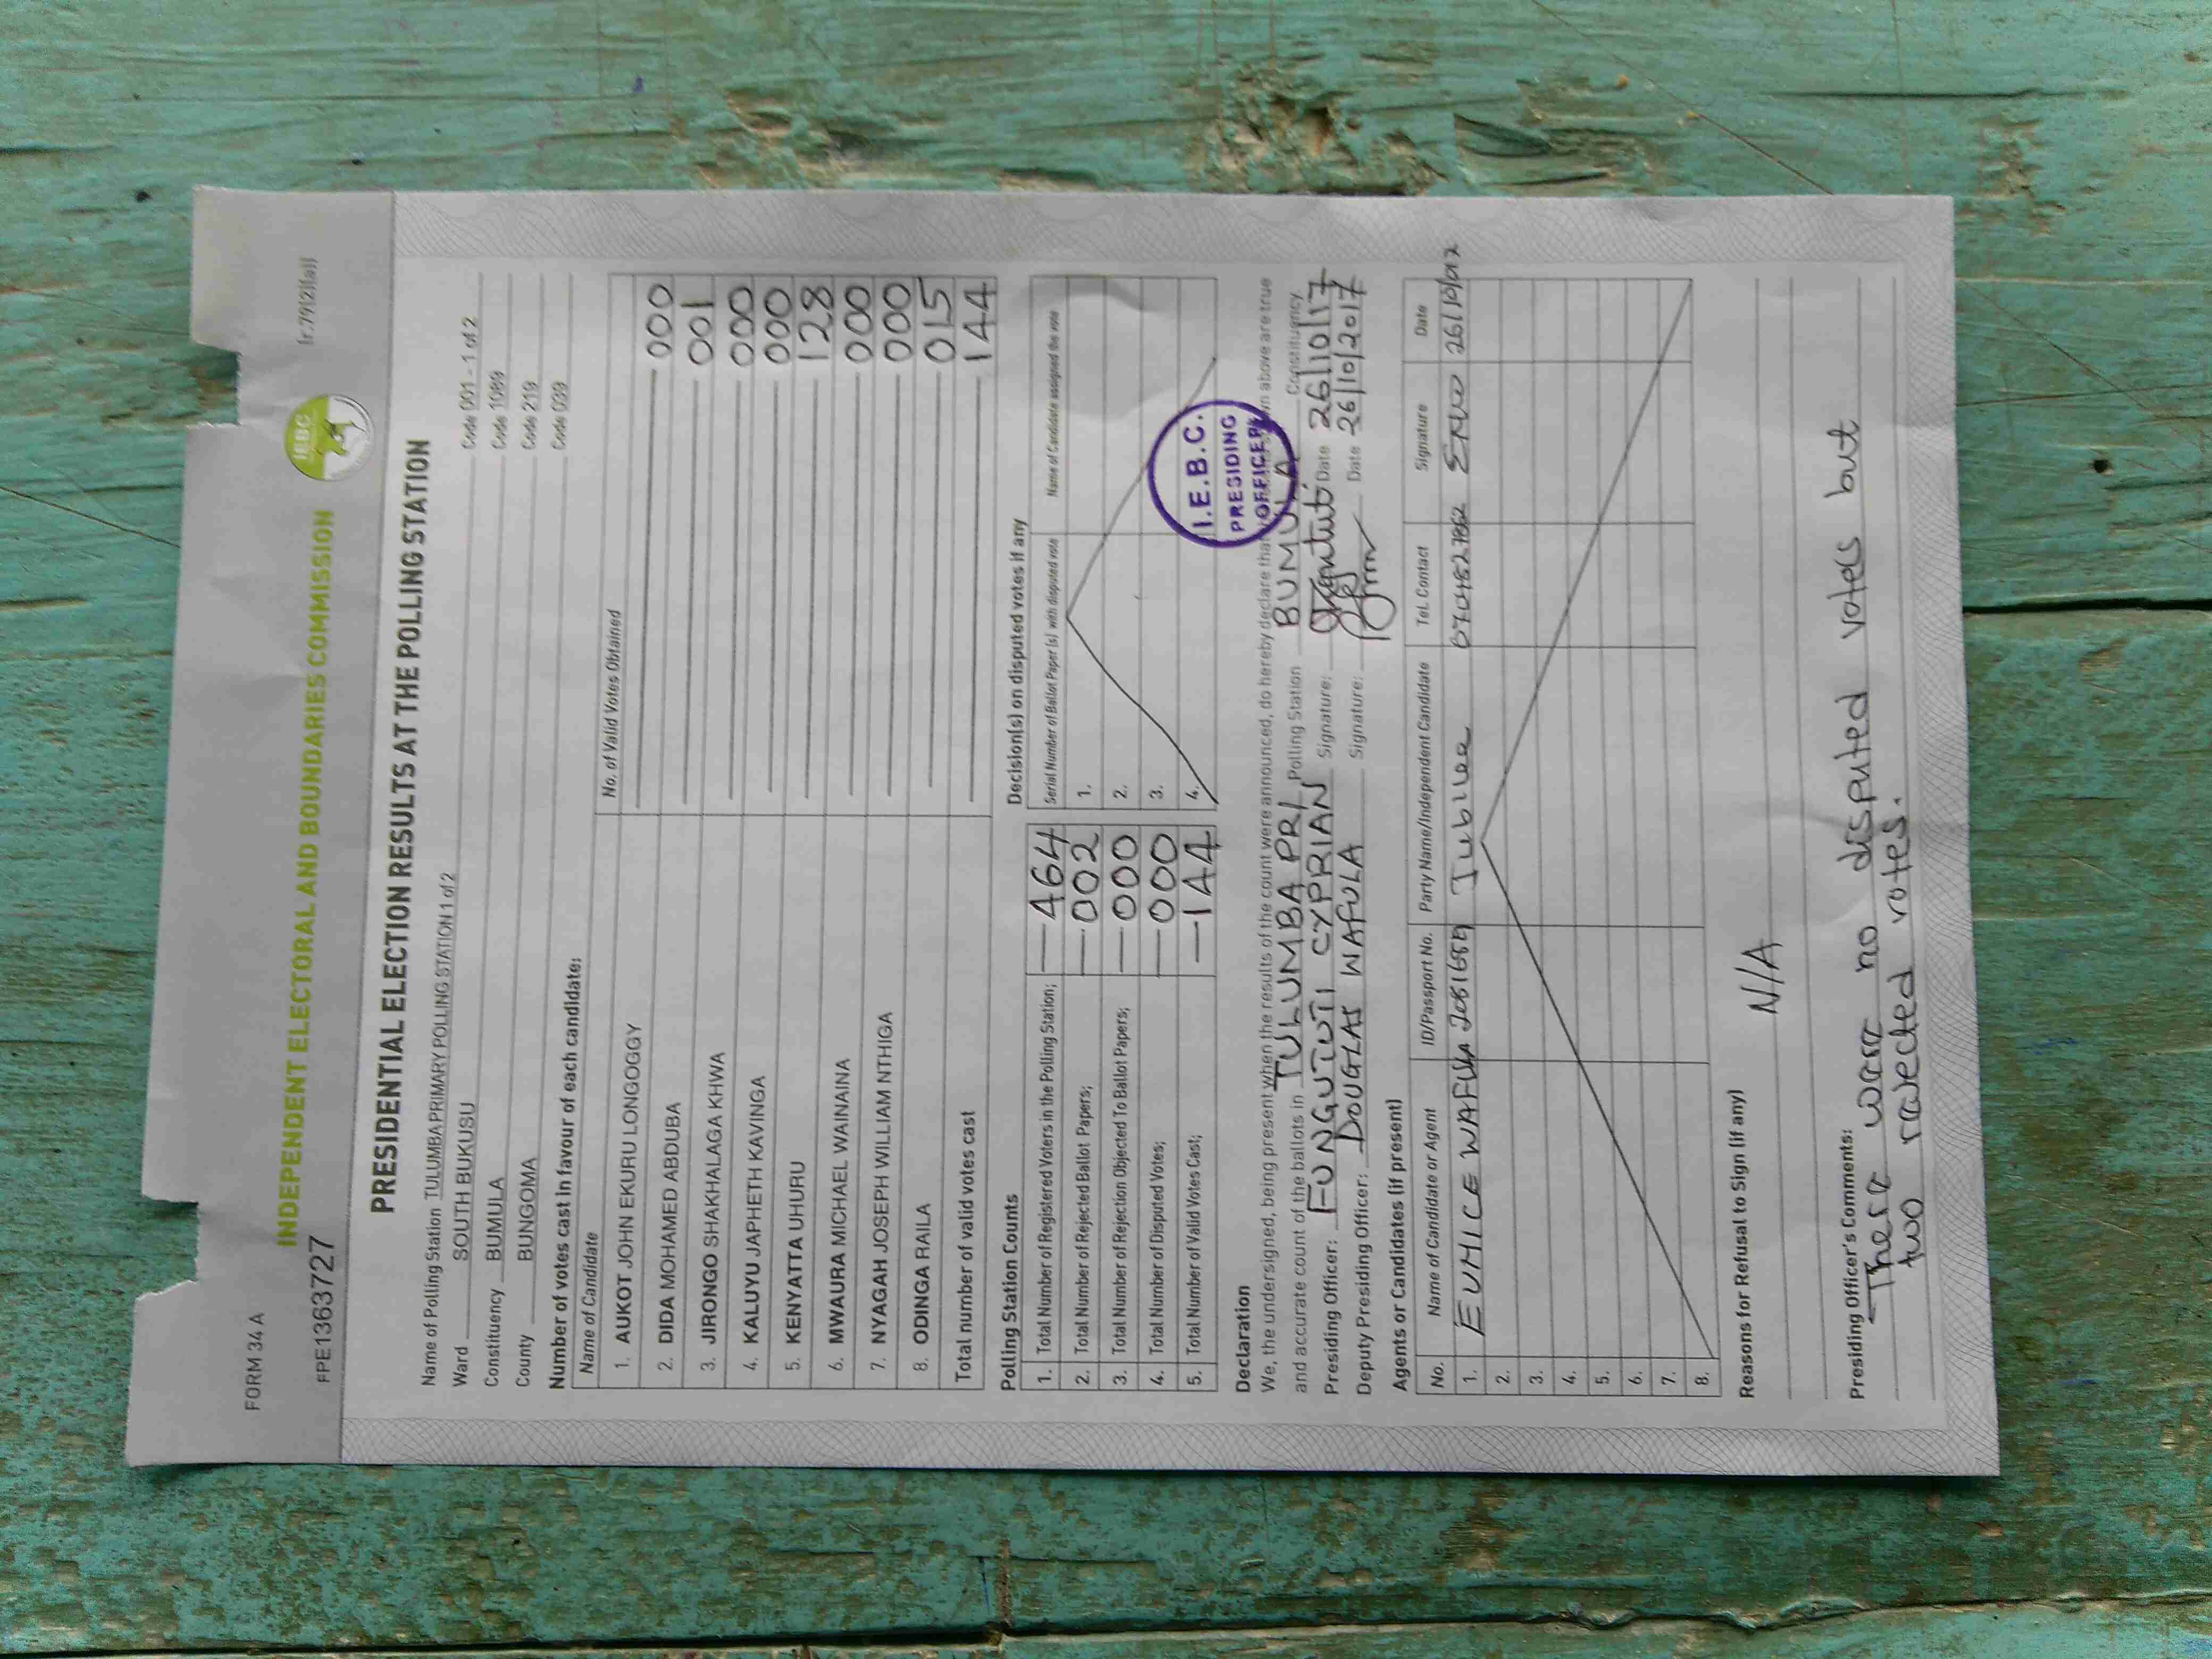 FORM 34 A
[r.79(2)(a)]
IEBC
INDEPENDENT ELECTORAL AND BOUNDARIES COMMISSION
FPE1363727
PRESIDENTIAL ELECTION RESULTS AT THE POLLING STATION
Name of Polling Station TULUMBA PRIMARY POLLING STATION 1 of 2 Code 001 - 1 of 2
Ward SOUTH BUKUSU Code 1089
Constituency BUMULA Code 219
County BUNGOMA Code 039
Number of votes cast in favour of each candidate:
Name of Candidate No. of Valid Votes Obtained
1. AUKOT JOHN EKURU LONGOGGY 000
2. DIDA MOHAMED ABDUBA 001
3. JIRONGO SHAKHALAGA KHWA 000
4. KALUYU JAPHETH KAVINGA 000
5. KENYATTA UHURU 128
6. MWAURA MICHAEL WAINAINA 000
7. NYAGAH JOSEPH WILLIAM NTHIGA 000
8. ODINGA RAILA 015
Total number of valid votes cast 144
Polling Station Counts
1. Total Number of Registered Voters in the Polling Station; 464
2. Total Number of Rejected Ballot Papers; 002
3. Total Number of Rejection Objected To Ballot Papers; 000
4. Total Number of Disputed Votes; 000
5. Total Number of Valid Votes Cast; 144
Decision(s) on disputed votes if any
Serial Number of Ballot Paper (s) with disputed vote Name of Candidate assigned the vote
1.
2.
3.
4.
I.E.B.C.
PRESIDING
OFFICER
Declaration
We, the undersigned, being present when the results of the count were announced, do hereby declare that above are true
and accurate count of the ballots in TULUMBA PRI Polling Station BUMULA Constituency
Presiding Officer: FUNGUTUTI CYPRIAN Signature: Date 26/10/17
Deputy Presiding Officer: DOUGLAS WAFULA Signature: Date 26/10/2017
Agents or Candidates (if present)
No. Name of Candidate or Agent ID/Passport No. Party Name/Independent Candidate Tel. Contact Signature Date
1. EUNICE WAFULA Jubilee
2.
3.
4.
5.
6.
7.
8.
Reasons for Refusal to Sign (if any)
N/A
Presiding Officer's Comments:
There were no disputed votes but
two rejected votes.